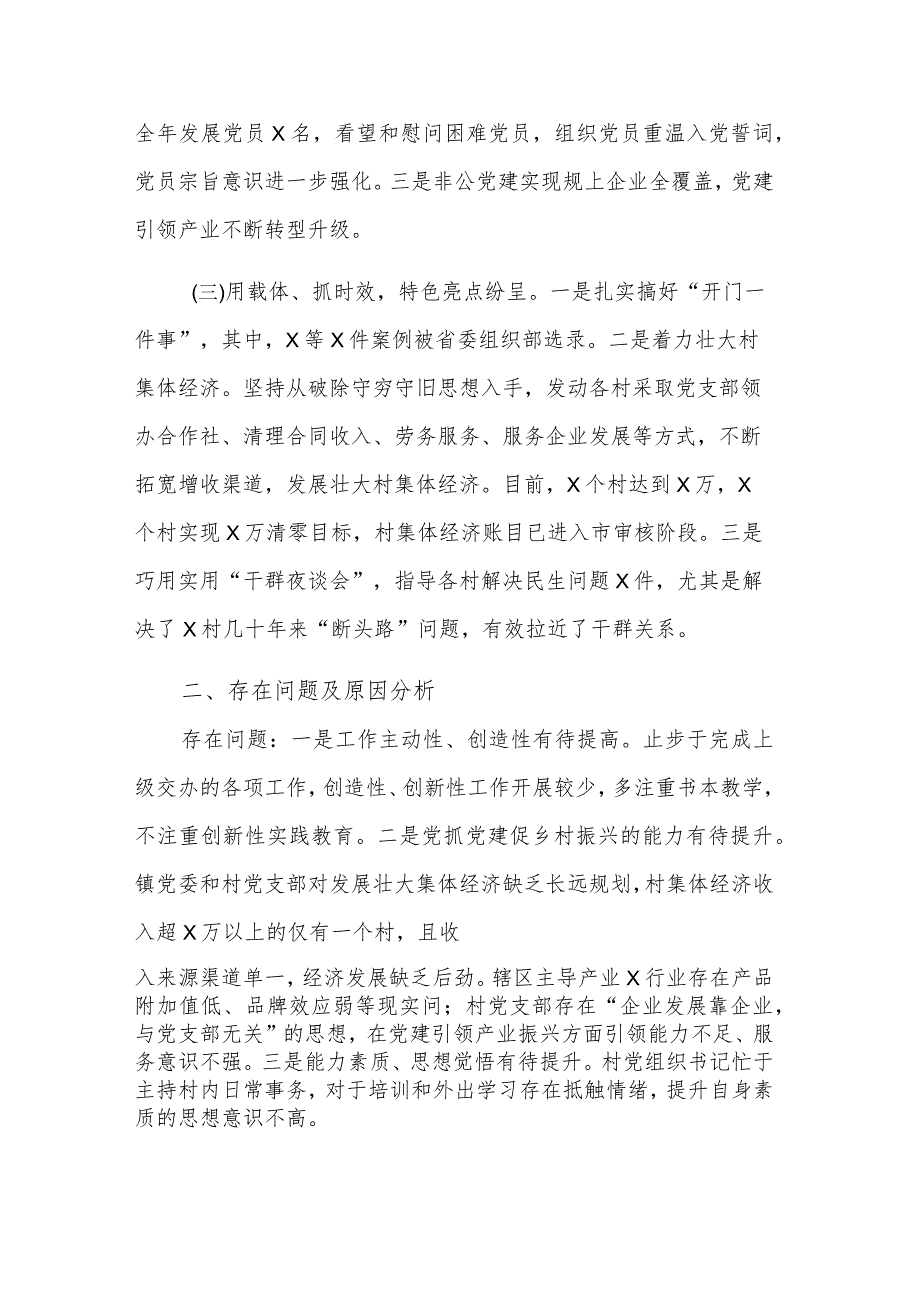 全年发展党员X名，看望和慰问困难党员，组织党员重温入党誓词，
党员宗旨意识进一步强化。三是非公党建实现规上企业全覆盖，党建
引领产业不断转型升级。
(三)用载体、抓时效，特色亮点纷呈。一是扎实搞好“开门一
件事”，其中，X等X件案例被省委组织部选录。二是着力壮大村
集体经济。坚持从破除守穷守旧思想入手，发动各村采取党支部领
办合作社、清理合同收入、劳务服务、服务企业发展等方式，不断
拓宽增收渠道，发展壮大村集体经济。目前，X个村达到X万，X
个村实现X万清零目标，村集体经济账目已进入市审核阶段。三是
巧用实用“干群夜谈会”，指导各村解决民生问题X件，尤其是解
决了X村几十年来“断头路”问题，有效拉近了干群关系。
二、存在问题及原因分析
存在问题：一是工作主动性、创造性有待提高。止步于完成上
级交办的各项工作，创造性、创新性工作开展较少，多注重书本教学，
不注重创新性实践教育。二是党抓党建促乡村振兴的能力有待提升。
镇党委和村党支部对发展壮大集体经济缺乏长远规划，村集体经济收
入超X万以上的仅有一个村，且收
入来源渠道单一，经济发展缺乏后劲。辖区主导产业X行业存在产品
附加值低、品牌效应弱等现实问；村党支部存在“企业发展靠企业，
与党支部无关”的思想，在党建引领产业振兴方面引领能力不足、服
务意识不强。三是能力素质、思想觉悟有待提升。村党组织书记忙于
主持村内日常事务，对于培训和外出学习存在抵触情绪，提升自身素
质的思想意识不高。